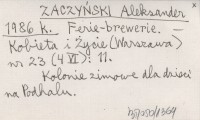 ZACZYŃSKI Aleksander
1986 R. Ferie-brewerie. –
Kobieta i Życie (Warszawa)
nr 23 (4 VI): 11.
Kolonie zimowe dla dzieci
na Podhalu.